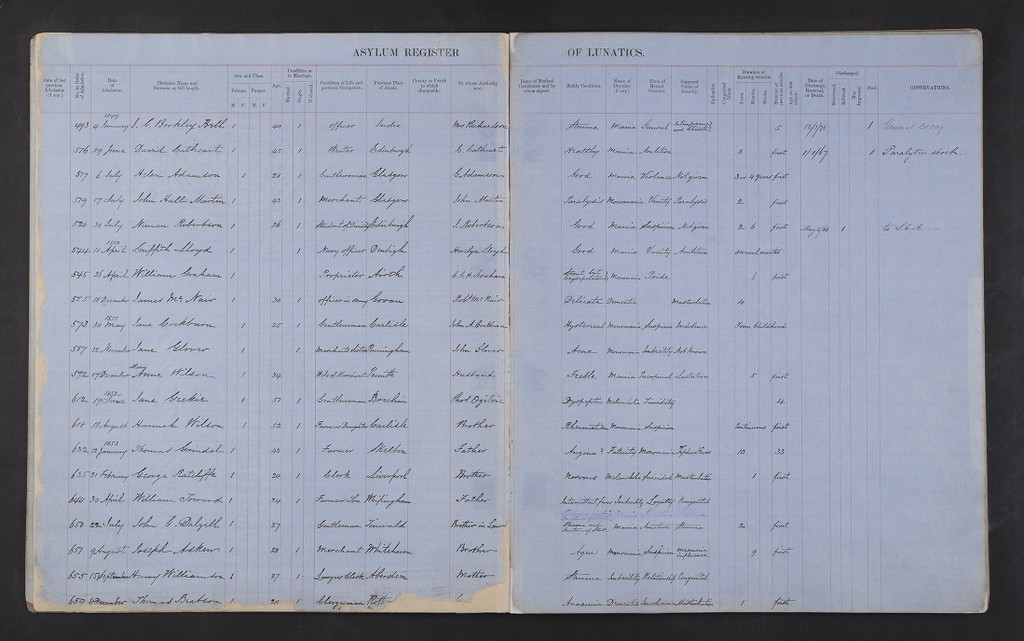 ASYLUM REGISTER OF LUNATICS.
Date of last previous Admission (if any). No. in Order of Admission. Date of Admission. Christian Name and Surname at full length. Sex and Class. Private. Pauper. M. F. M. F. Age. Condition as to Marriage. Married. Single. Widowed. Condition of Life and previous Occupation. Previous Place of Abode. County or Parish to which chargeable. By whose Authority sent. Dates of Medical Certificates and by whom signed. Bodily Condition. Name of Disease (if any). Form of Mental Disorder. Supposed Cause of Insanity. Epileptics. Congenital Idiots. Duration of Existing attacks. Years. Months. Weeks. Number of previous attacks. Age on first attack. Date of Discharge, Removal, or Death. Discharged. Recovered. Relieved. Not Improved. Died. OBSERVATIONS.
1849
493 4 January 1 40 1 Officer India Mrs Richardson Struma Mania General 5 12/7/71 1 General decay
516 29 June David Cathcart 1 45 1 Writer Edinburgh C. Cathcart Healthy Mania Ambition 6 first 1/1/67 1 Paralytic shock.
517 6 July Helen Adamson 1 23 1 Gentlewoman Glasgow C. Adamson Good Mania Violence Not given 3 or 4 years first
519 17 July John Hall Martin 1 42 1 Merchant Glasgow John Martin Paralysis Monomania Vanity Paralysis 2 first
520 30 July Ninian Robertson 1 26 1 Student of Divinity Edinburgh J. Robertson Good Mania Suspicion Not given 2 6 first 1
1850
544 11 April Griffith Lloyd 1 1 Navy officer Denbigh Lloyd Good Mania Vanity Ambition several weeks
545 26 April William Graham 1 Proprietor Airth Graham Monomania Pride first
555 10 December James McNair 1 30 1 officer in army Govan Robt McNair Delicate Dementia Masturbation 10
1851
573 30 May Jane Cockburn 1 25 1 Gentlewoman Carlisle Hysterical Monomania Suspicion Indolence From Childhood
587 12 November Jane Glover 1 1 Birmingham John Glover Acne Monomania Imbecility Not known
592 17 December Mary Anne Wilson 1 34 1 Wife of Merchant Penrith Husband Feeble Mania Puerperal Lactation 5 first
1852
612 19 June Jane Geekie 1 57 1 Gentlewoman Brechin Ogilvie Dyspeptic Melancholia Timidity 4
618 18 August Hannah Wilson 1 52 1 Farmers Daughter Carlisle Brother Rheumatism Monomania Suspicion Continuous first
1853
632 12 January Thomas Grundal 1 43 1 Farmer Skelton Father Angina? Fatuity Monomania Typhus Fever 10 33
635 21 February George Ratcliffe 1 20 1 Clerk Liverpool Brother Nervous Melancholia Suicidal Masturbation 1 first
640 30 April William Toward 1 24 1 Farmers Son Father Intermittent fever Imbecility Loquacity Congenital
650 22 July John C. Dalzell 1 27 1 Gentleman Tinwald Brother in Law Mania Struma 2 first
651 9 August Joseph Askew 1 28 1 Merchant Whitehaven Brother Ague Monomania Suspicion Mesmeric influence 9 first
655 15 September Henry Williamson 1 27 1 Lawyers Clerk Aberdeen Mother Struma Imbecility Congenital
659 December Thomas Beatson 1 20 1 Clergyman Anaemia Dementia Masturbation 1 first